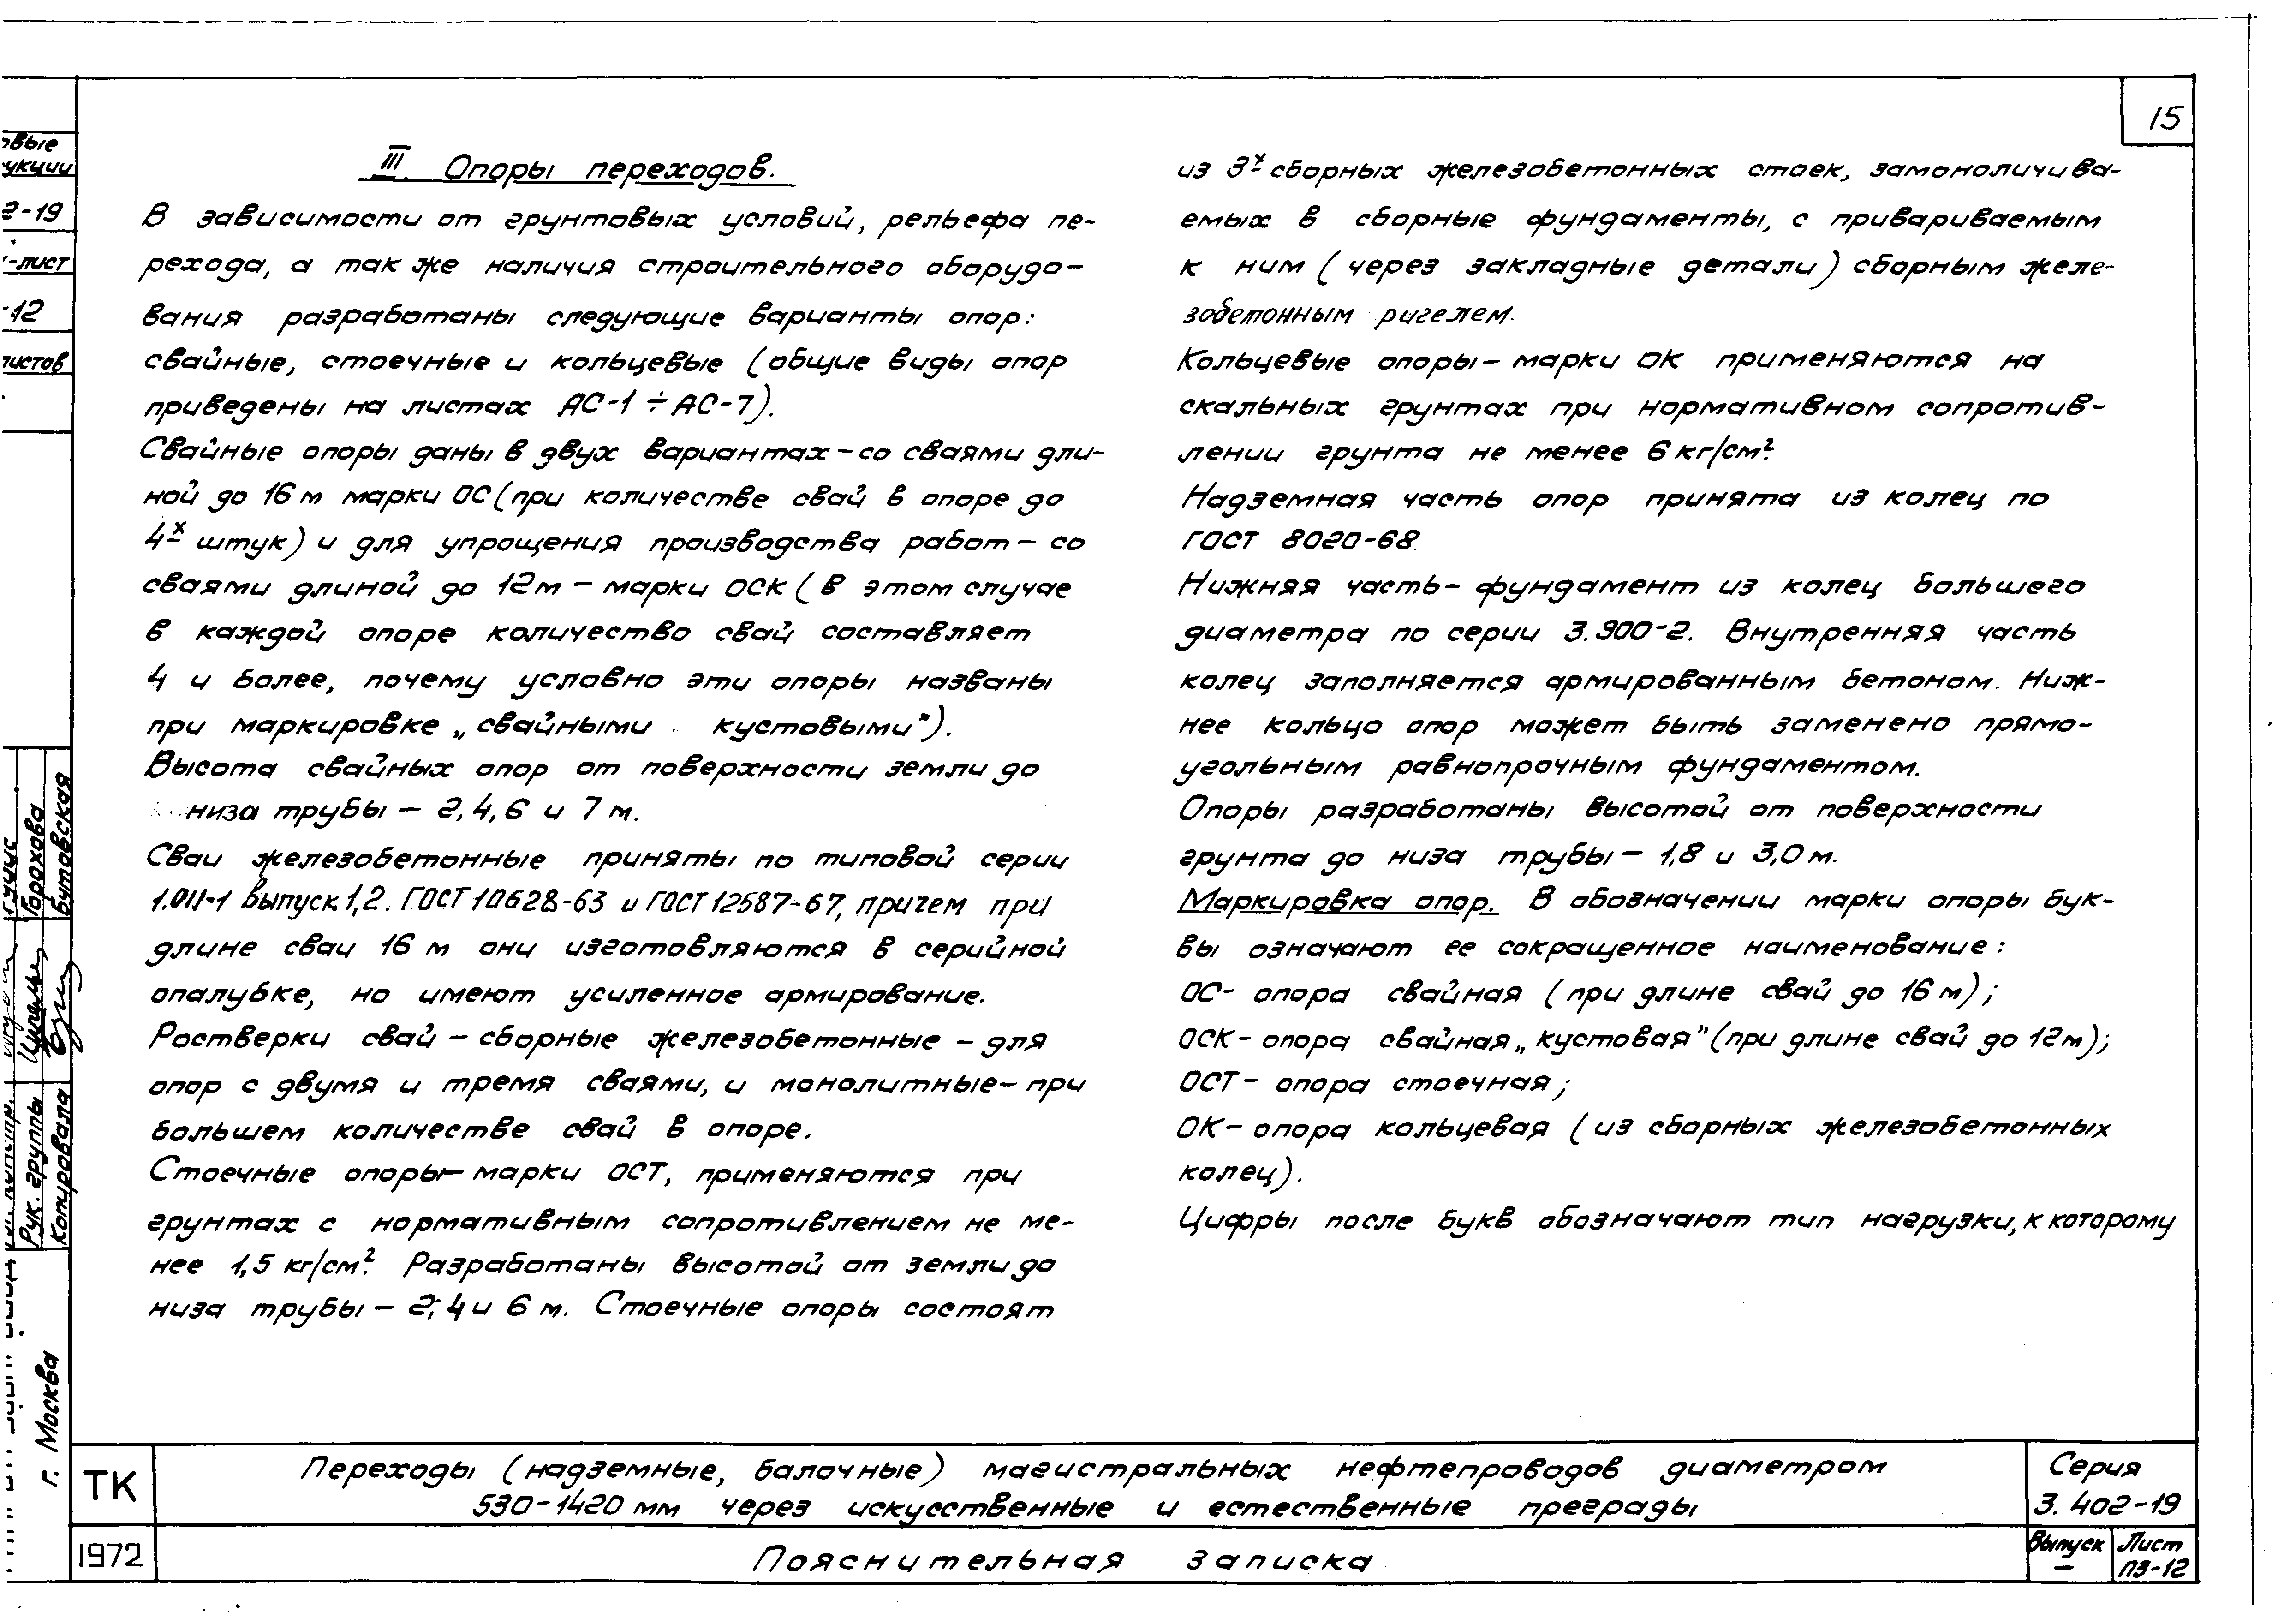 15
III. Опоры переходов.
В зависимости от грунтовых условий, рельефа пе-
рехода, а так же наличия строительного оборудо-
вания разработаны следующие варианты опор:
свайные, стоечные и кольцевые (общие виды опор
приведены на листах АС-1 ÷ АС-7).
Свайные опоры даны в двух вариантах – со сваями дли-
ной до 16 м марки ОС (при количестве свай в опоре до
4х штук) и для упрощения производства работ – со
сваями длиной до 12 м – марки ОСК (в этом случае
в каждой опоре количество свай составляет
4 и более, почему условно эти опоры названы
при маркировке „свайными кустовыми").
Высота свайных опор от поверхности земли до
низа трубы – 2, 4, 6 и 7 м.
Сваи железобетонные приняты по типовой серии
1.011-1 выпуск 1,2. ГОСТ 10628-63 и ГОСТ 12587-67, причем при
длине сваи 16 м они изготовляются в серийной
опалубке, но имеют усиленное армирование.
Ростверки свай – сборные железобетонные – для
опор с двумя и тремя сваями, и монолитные – при
большем количестве свай в опоре.
Стоечные опоры – марки ОСТ, применяются при
грунтах с нормативным сопротивлением не ме-
нее 1,5 кг/см². Разработаны высотой от земли до
низа трубы – 2; 4 и 6 м. Стоечные опоры состоят
из 3х сборных железобетонных стоек, замоноличива-
емых в сборные фундаменты, с привариваемым
к ним (через закладные детали) сборным желе-
зобетонным ригелем.
Кольцевые опоры – марки ОК применяются на
скальных грунтах при нормативном сопротив-
лении грунта не менее 6 кг/см².
Надземная часть опор принята из колец по
ГОСТ 8020-68
Нижняя часть – фундамент из колец большего
диаметра по серии 3.900-2. Внутренняя часть
колец заполняется армированным бетоном. Ниж-
нее кольцо опор может быть заменено прямо-
угольным равнопрочным фундаментом.
Опоры разработаны высотой от поверхности
грунта до низа трубы – 1,8 и 3,0 м.
Маркировка опор. В обозначении марки опоры бук-
вы означают ее сокращенное наименование:
ОС – опора свайная (при длине свай до 16 м);
ОСК – опора свайная „кустовая" (при длине свай до 12 м);
ОСТ – опора стоечная;
ОК – опора кольцевая (из сборных железобетонных
колец).
Цифры после букв обозначают тип нагрузки, к которому
ТК
1972
Переходы (надземные, балочные) магистральных нефтепроводов диаметром
530-1420 мм через искусственные и естественные преграды
Пояснительная записка
Серия
3.402-19
Выпуск
–
Лист
ПЗ-12
2-19
-лист
-12
листов
Рук. группы
Горохова
Копировала
Бутовская
г. Москва